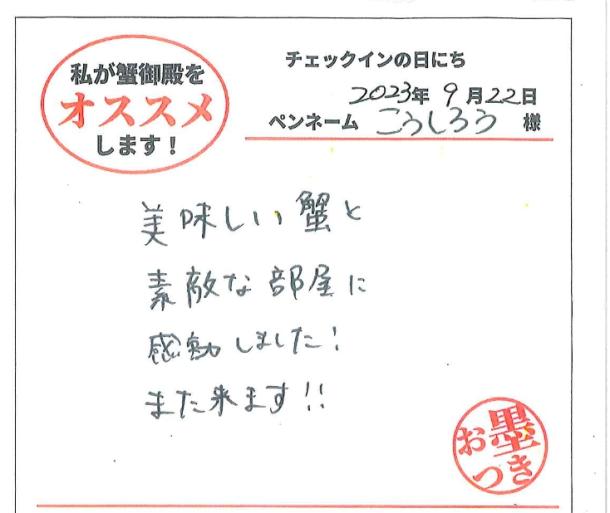 私が蟹御殿を
オススメ
します！
チェックインの日にち
2023年 9月22日
ペンネーム こうしろう 様
美味しい蟹と
素敵な部屋に
感動しました!
また来ます!!
お墨
つき